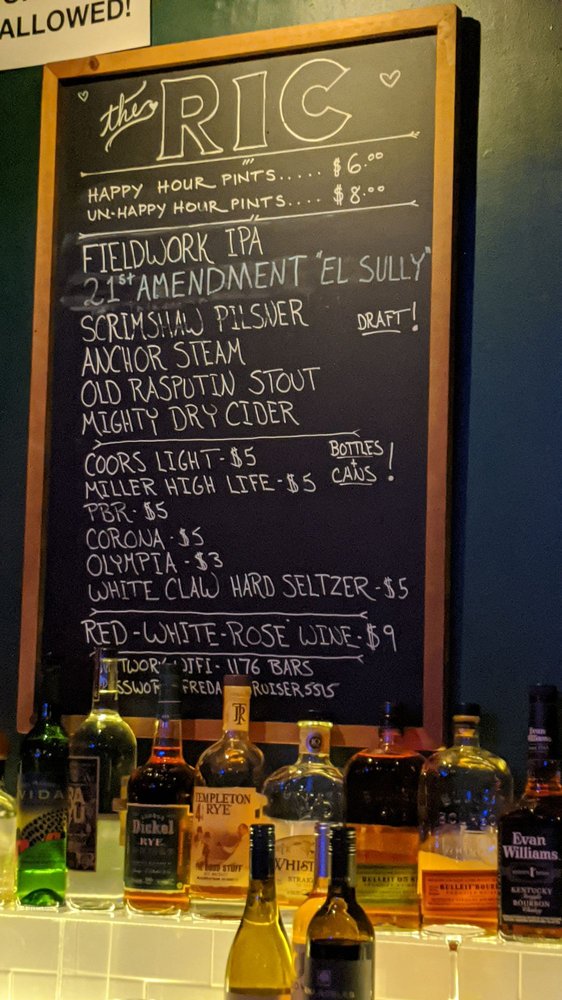 ALLOWED!
the RIC
HAPPY HOUR PINTS..... $6.00
UN-HAPPY HOUR PINTS.... $8.00
FIELDWORK IPA
21st AMENDMENT "EL SULLY"
SCRIMSHAW PILSNER
DRAFT!
ANCHOR STEAM
OLD RASPUTIN STOUT
MIGHTY DRY CIDER
COORS LIGHT-$5
BOTTLES + CANS!
MILLER HIGH LIFE-$5
PBR-$5
CORONA-$5
OLYMPIA-$3
WHITE CLAW HARD SELTZER-$5
RED-WHITE-ROSE WINE-$9
WIFI-1176 BARS
VIDA
Dickel
RYE
TR
TEMPLETON
RYE
GOOD STUFF
WHIST
STRAIG
BULLEIT
BULLEIT BOURB
Evan
Williams
KENTUCKY
BOURBON